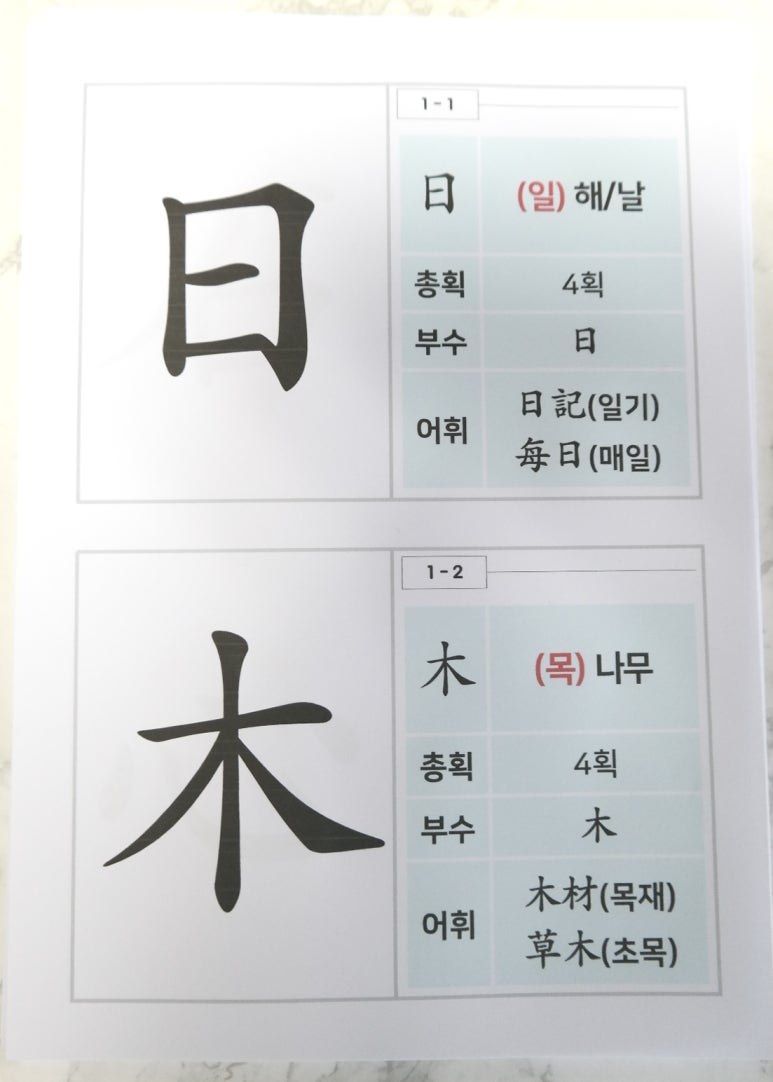 日
1-1
日 (일) 해/날
총획 4획
부수 日
어휘 日記(일기)
每日(매일)
木
1-2
木 (목) 나무
총획 4획
부수 木
어휘 木材(목재)
草木(초목)